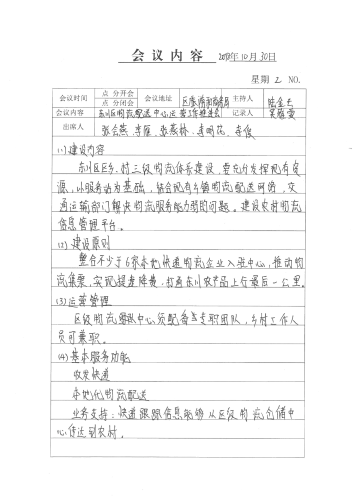 会议内容 2019年10月30日
星期 2 NO.
会议时间 点 分开会 会议地址 区 商务局 主持人 陆金
点 分闭会
会议内容 东川区物流配送中心运营工作推进会 记录人 吴
出席人 张会燕 李雁 张燕林 李明花 李俊
(1)建设内容
东川区区乡、村三级物流体系建设,要充分发挥现有资
源,以服务动为基础,结合现有乡镇物流配送网络,交
通运输部门解决物流服务能力弱的问题。建设农村物流
信息管理平台。
(2)建设原则
整合不少于6家本地快递物流企业入驻中心,推动物
流集聚,实现提速降费,打通东川农产品上行最后一公里。
(3)运营管理
区级物流 中心须配备 专职团队,乡村工作人
员可兼职。
(4)基本服务功能
收发快递
本地化物流配送
业务支持:快递跟踪信息能够从区级物流仓储中
心传达到农村。